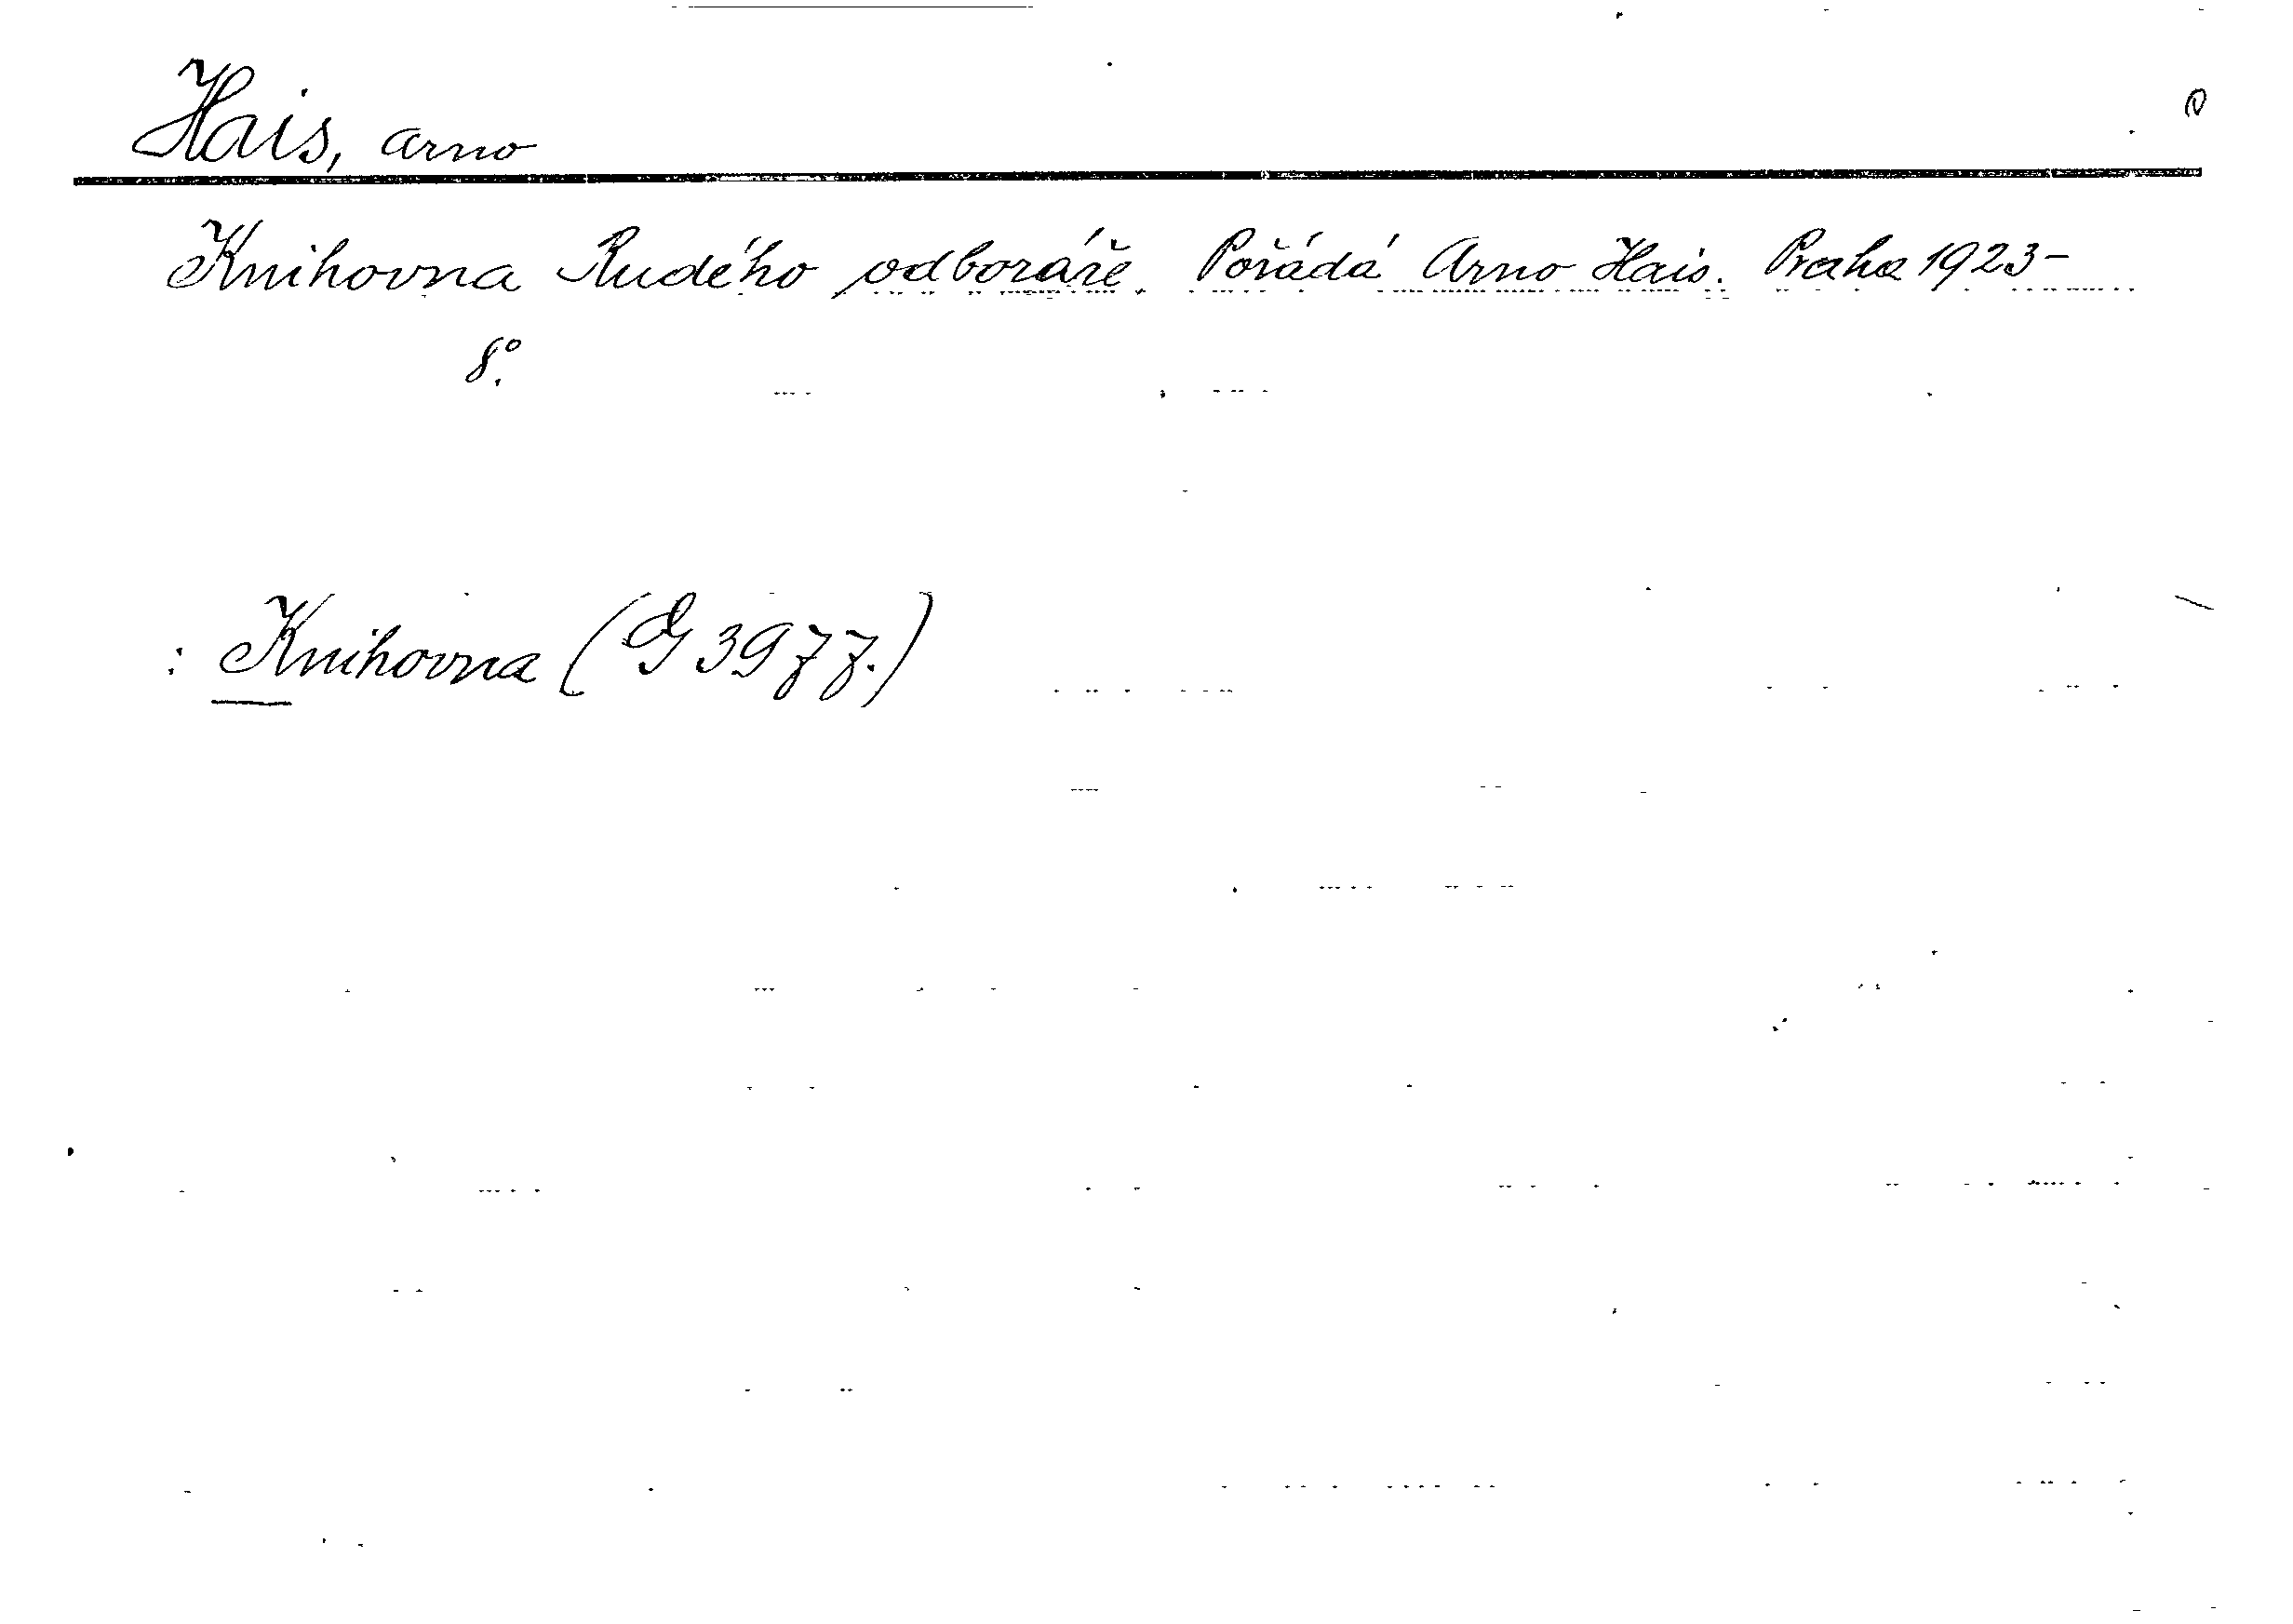 Hais, Arno
Knihovna Rudého odboráře. Pořádá Arno Hais. Praha 1923-
8°.
: Knihovna (G 3977.)